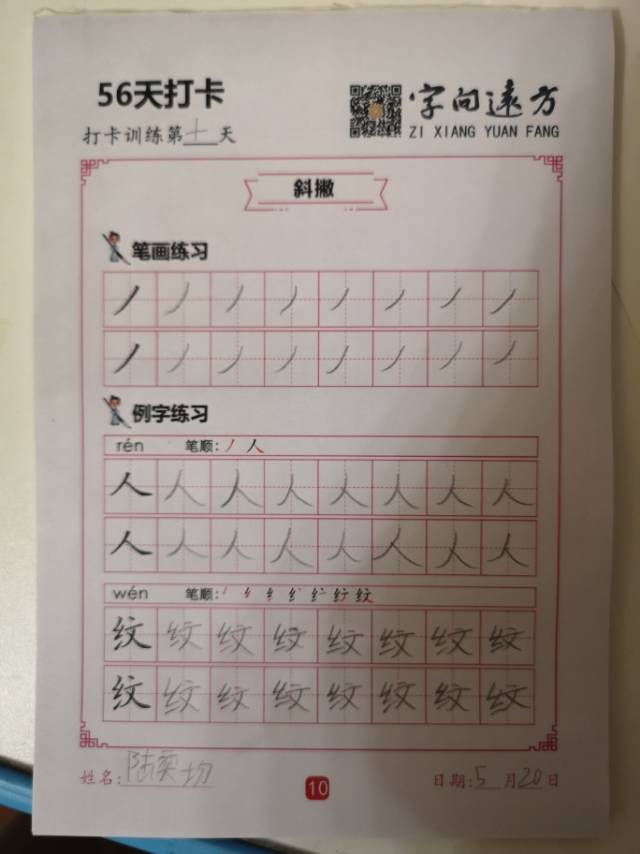 56天打卡
字向远方
打卡训练第十天
ZI XIANG YUAN FANG
斜撇
笔画练习
丿 丿 丿 丿 丿 丿 丿 丿
丿 丿 丿 丿 丿 丿 丿 丿
例字练习
rén 笔顺: 丿 人
人 人 人 人 人 人 人 人
人 人 人 人 人 人 人 人
wén 笔顺: 纹
纹 纹 纹 纹 纹 纹 纹 纹
纹 纹 纹 纹 纹 纹 纹 纹
姓名: 陆奕均
10
日期: 5月20日